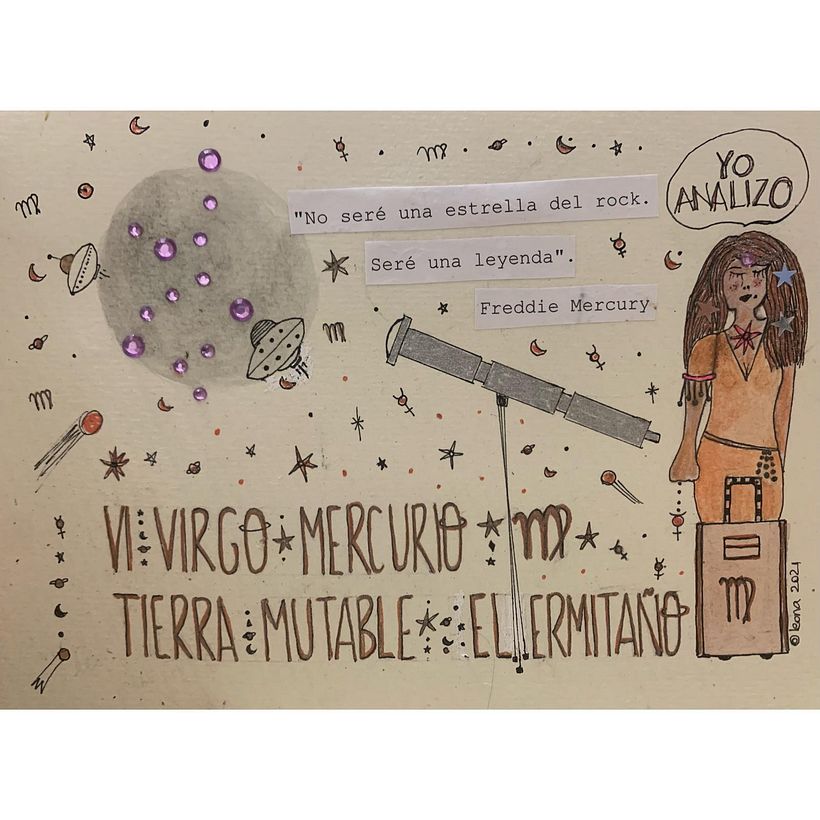 "No seré una estrella del rock.
Seré una leyenda".
Freddie Mercury
YO
ANALIZO
VI VIRGO MERCURIO ♍
TIERRA MUTABLE EL ERMITAÑO
© leona 2021